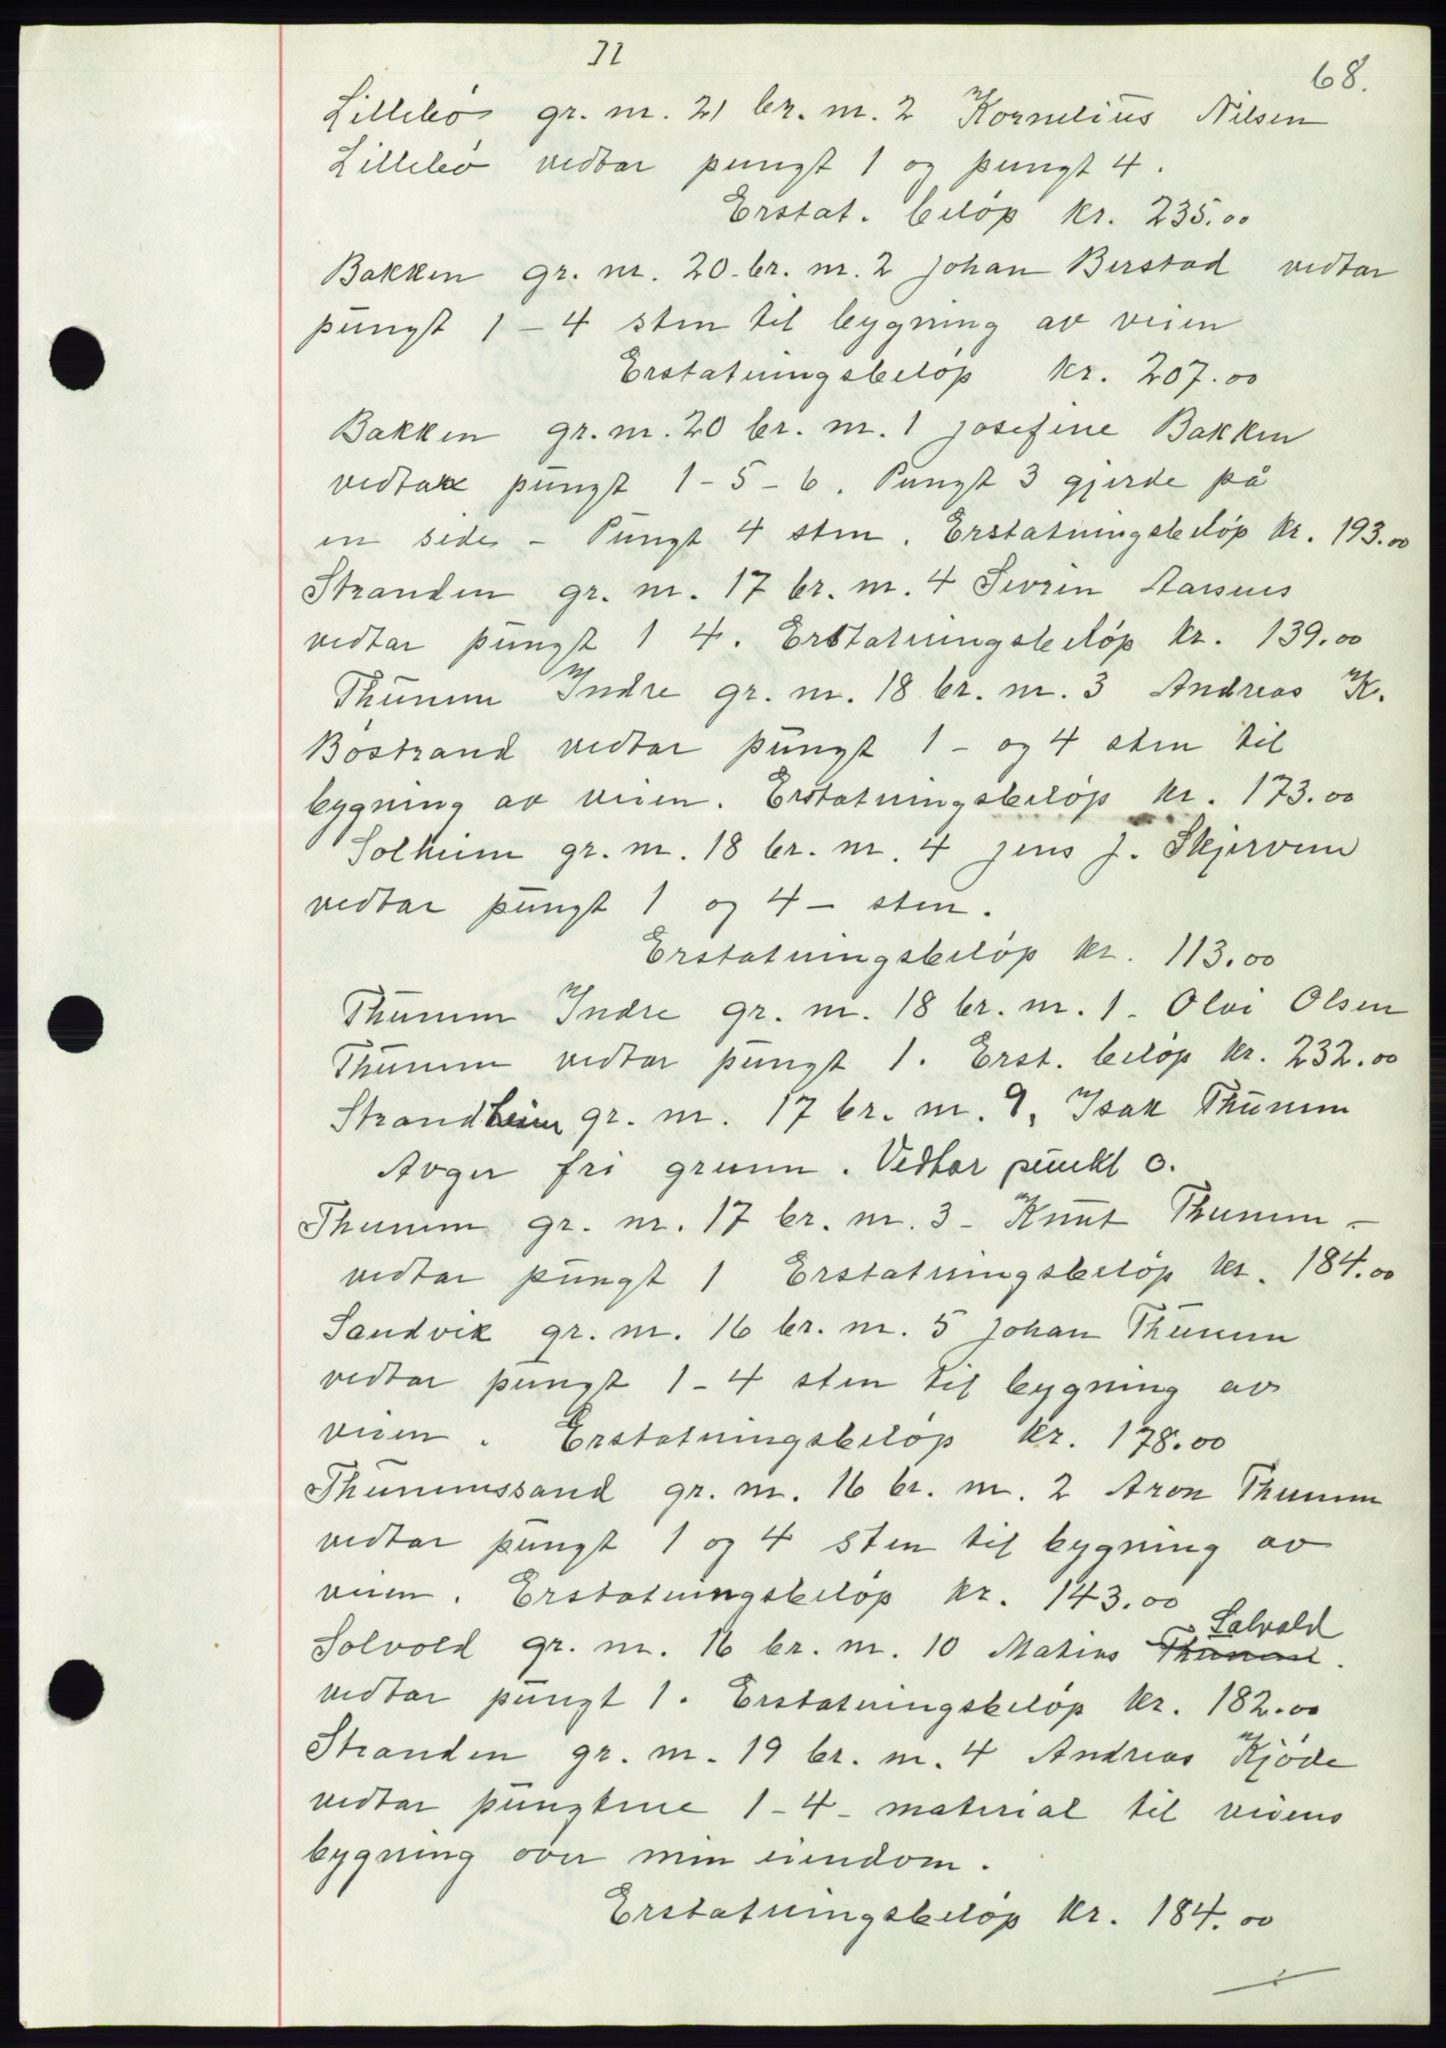 32
68.
Lillebö gr. nr. 21 br. nr. 2 Kornelius Nilsen
Lillebö vedtar pungt 1 og pungt 4.
Erstat. beløp kr. 235.00
Bakken gr. nr. 20 - br. nr. 2 Johan Berstad vedtar
pungt 1 - 4 sten til bygning av veien
Erstatningsbeløp kr. 207.00
Bakken gr. nr. 20 br. nr. 1 Josefine Bakken
vedtar pungt 1 - 5 - 6. Pungt 3 gjerde på
en side - Pungt 4 sten. Erstatningsbeløp kr. 193.00
Stranden gr. nr. 17 br. nr. 4 Sevrin Aarsnes
vedtar pungt 1 4. Erstatningsbeløp kr. 139.00
Thunem Indre gr. nr. 18 br. nr. 3 Andreas K.
Böstrand vedtar pungt 1 - og 4 sten til
bygning av veien. Erstatningsbeløp kr. 173.00
Solheim gr. nr. 18 br. nr. 4 Jens J. Skjerven
vedtar pungt 1 og 4 - sten.
Erstatningsbeløp kr. 113.00
Thunem Indre gr. nr. 18 br. nr. 1 - Olai Olsen
Thunem vedtar pungt 1. Erst. beløp kr. 232.00
Strandheim gr. nr. 17 br. nr. 9, Isak Thunem
Avger fri grunn. Vedtar punkt o.
Thunem gr. nr. 17 br. nr. 3 - Knut Thunem -
vedtar pungt 1 Erstatningsbeløp kr. 184.00
Sandvik gr. nr. 16 br. nr. 5 Johan Thunem
vedtar pungt 1 - 4 sten til bygning av
veien. Erstatningsbeløp kr. 178.00
Thunemssand gr. nr. 16 br. nr. 2 Aron Thunem
vedtar pungt 1 og 4 sten til bygning av
veien. Erstatningsbeløp kr. 143.00
Solvold gr. nr. 16 br. nr. 10 Matias Thunem Solvold.
vedtar pungt 1. Erstatningsbeløp kr. 182.00
Stranden gr. nr. 19 br. nr. 4 Andreas Kjöde
vedtar pungtene 1 - 4 - material til veiens
bygning over min eiendom.
Erstatningsbeløp kr. 184.00